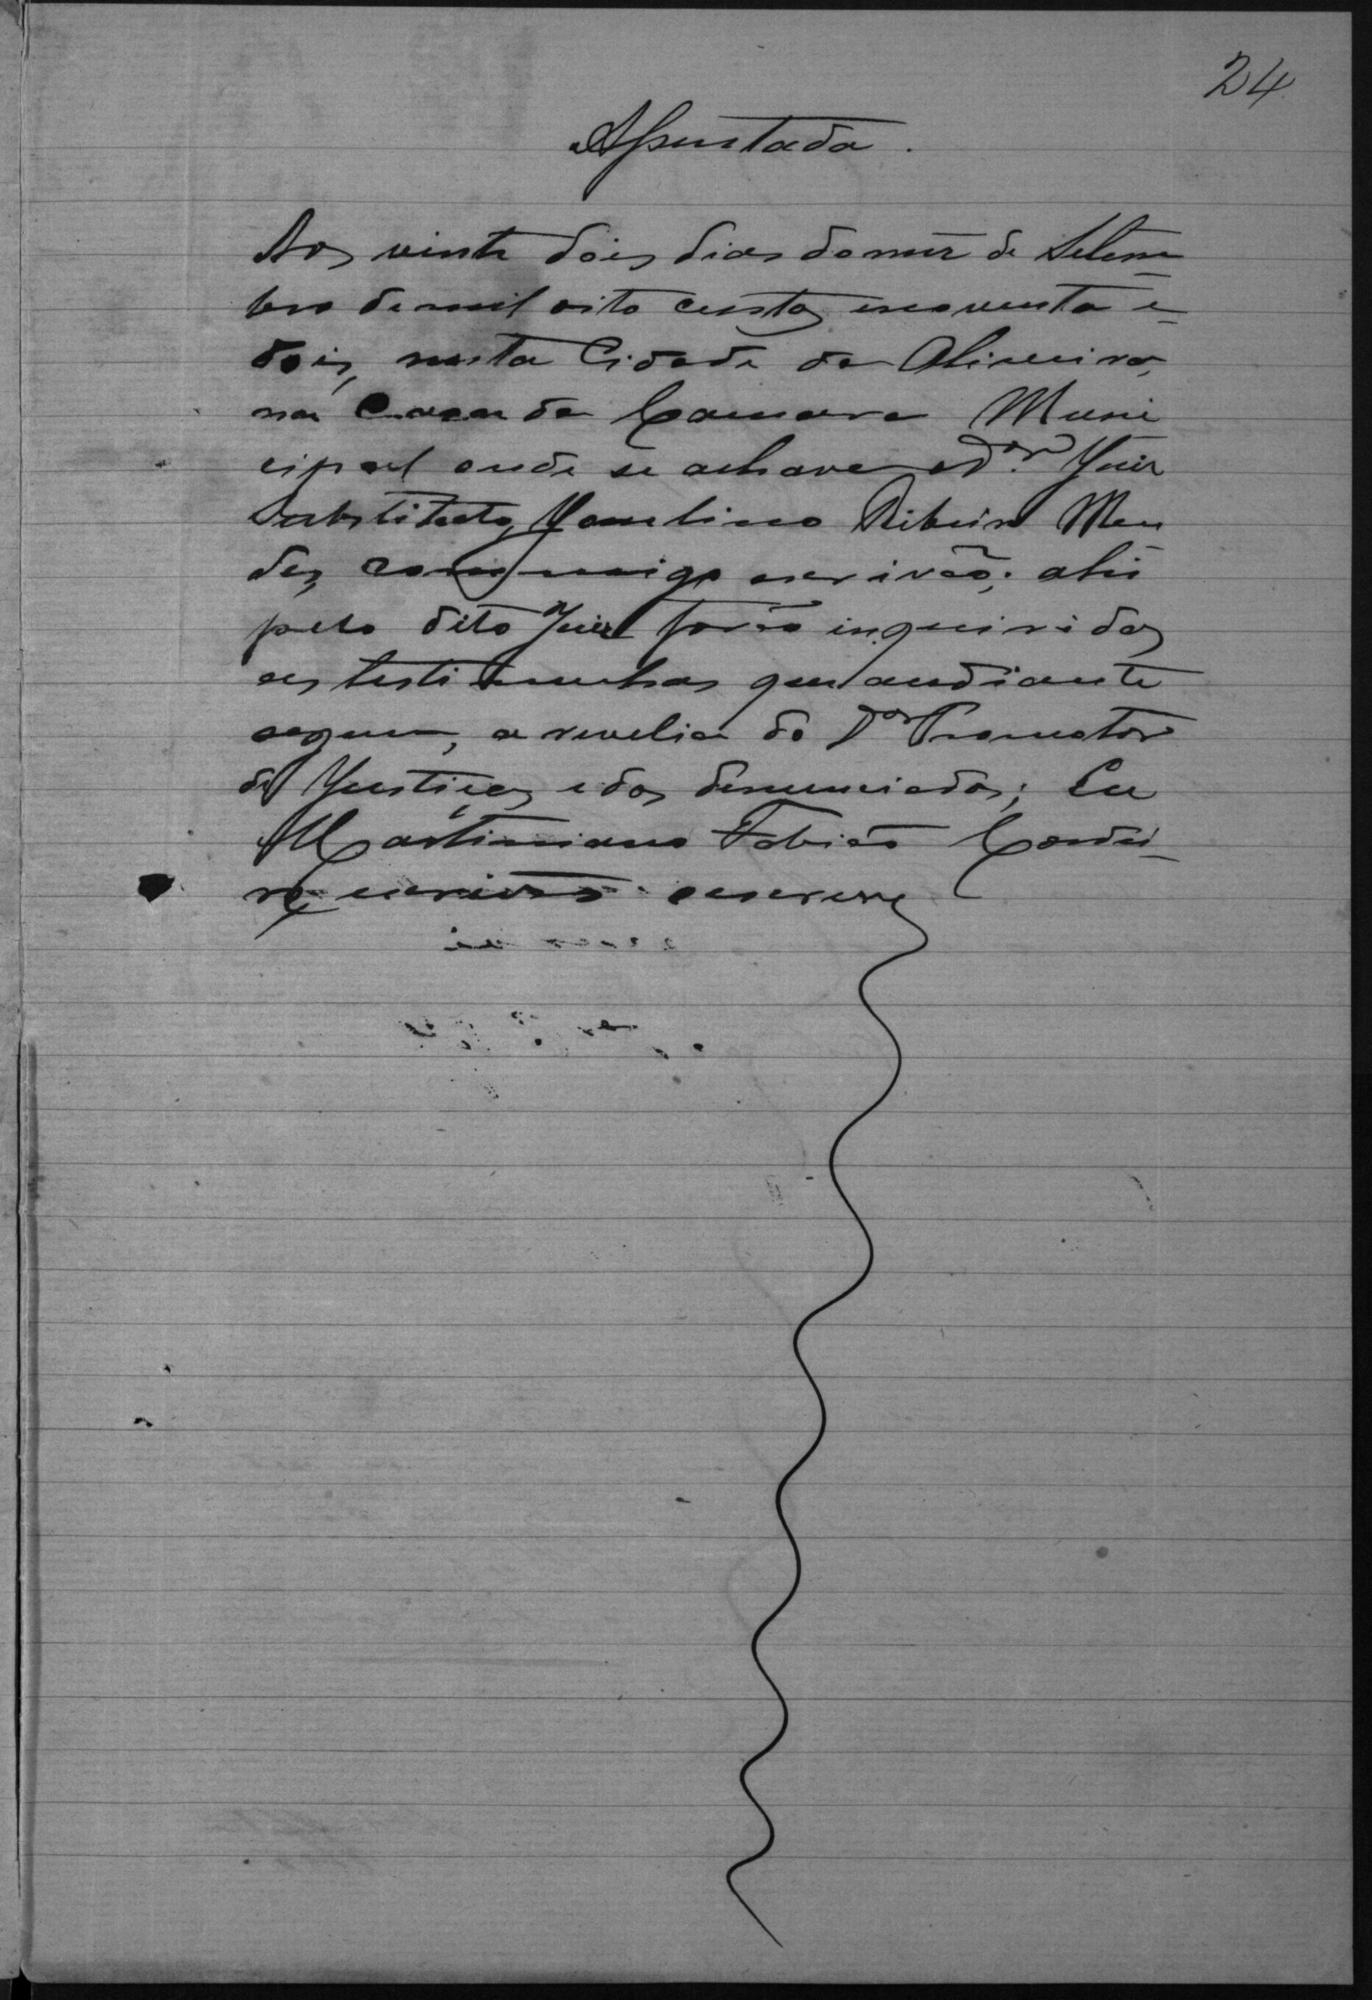 24
Assentada.
Aos vinte dois dias do mez de Setem
bro de mil oito centos enoventa e
dois, nesta Cidade da Oliveira,
na Casa da Camara Muni
cipal onde se achava o Dr. Juiz
Substituto, Ribeiro Men
des, commigo escrivão; ahi
pelo dito Juiz forão inqueridas
as testimunhas que audiante
seguem, a revelia do Dor Promotor
de Justiça, e dos denunciados; Eu
Martiniano Fabião Cordei
ro escrivão oescrevy